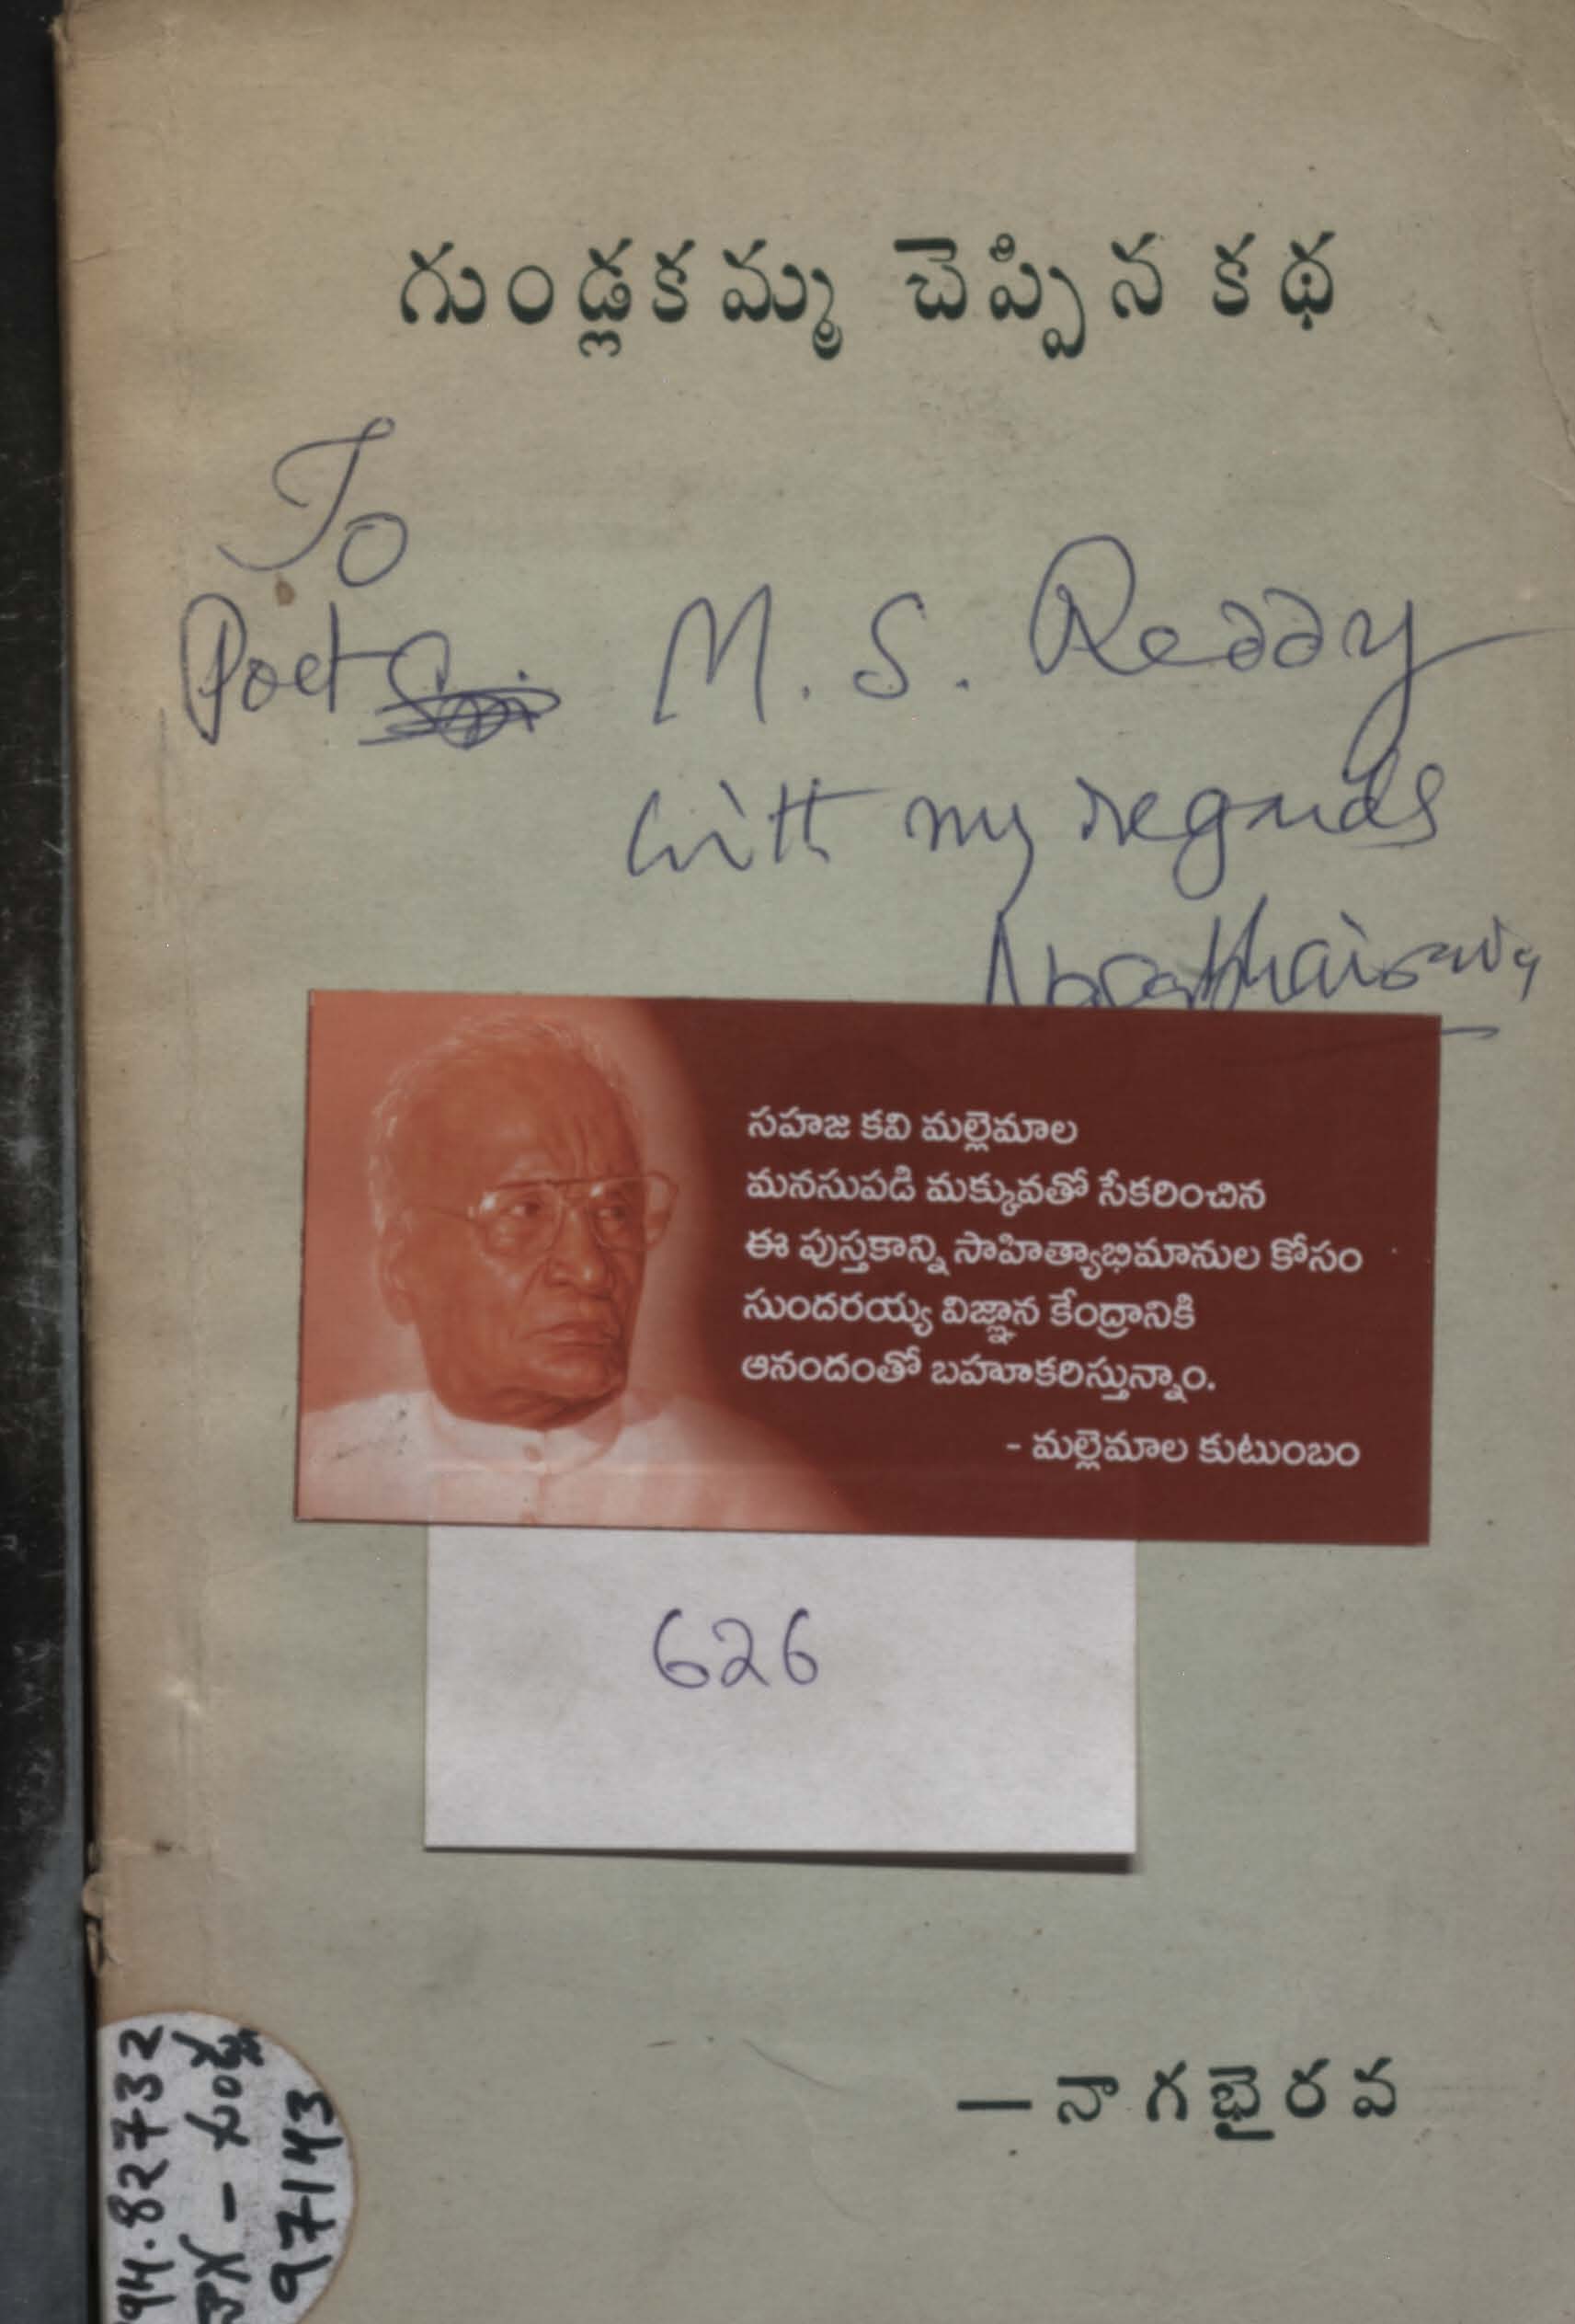 గుండ్లకమ్మ చెప్పిన కథ
To
Poet M. S. Reddy
with my regards
Nagabhairava
సహజ కవి మల్లెమాల
మనసుపడి మక్కువతో సేకరించిన
ఈ పుస్తకాన్ని సాహిత్యాభిమానుల కోసం
సుందరయ్య విజ్ఞాన కేంద్రానికి
ఆనందంతో బహూకరిస్తున్నాం.
- మల్లెమాల కుటుంబం
626
— నాగభైరవ
94.82732
నాగ - గుండ్ల
97143